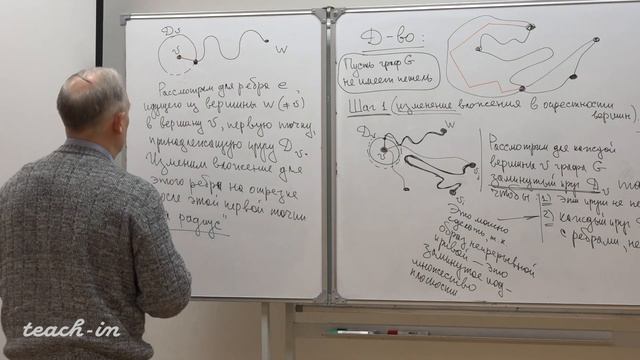 Dv
v
w
Рассмотрим для ребра e,
идущего из вершины w (≠v)
в вершину v, первую точку,
принадлежащую кругу Dv.
Изменим вложение для
этого ребра на отрезке
после этой первой точки
на "радиус"
Д-во:
Пусть граф G
не имеет петель
Шаг 1 (изменение вложения в окрестности
вершин).
Dv
v
w
Рассмотрим для каждой
вершины v графа G
замкнутый круг Dv
чтобы: 1) Эти круги не пе
2) каждый круг
с рёбрами, не
Это можно
сделать, т.к.
образ непрерывной
кривой — это
замкнутое под-
множество
плоскости
teach-in